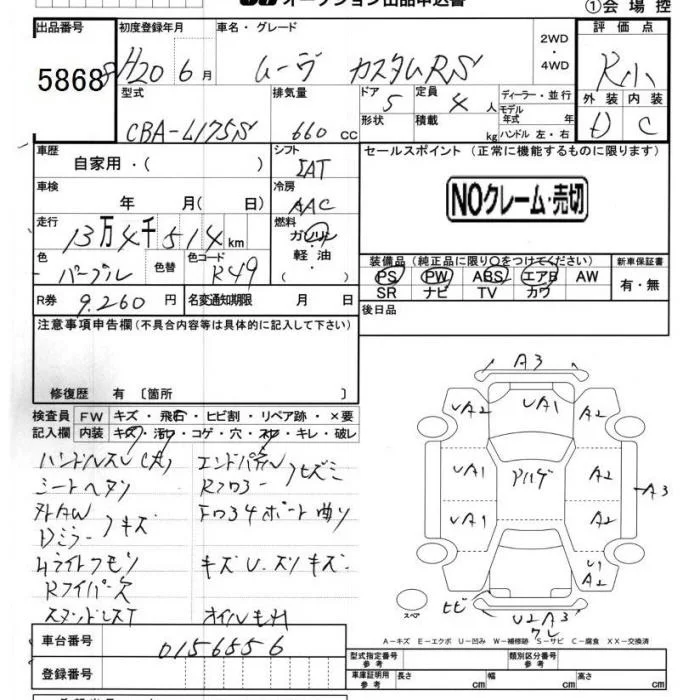 オークション出品申込書
①会場控
出品番号 初度登録年月 車名・グレード 評価点
5868 H20 6月 ムーヴ カスタムRS 2WD・4WD R小
型式 排気量 ドア 定員 ディーラー・並行 外装 内装
CBA-L175S 660cc 5 4人 モデル年式 年 D C
形状 積載 kg ハンドル 左・右
車歴 シフト セールスポイント (正常に機能するものに限ります)
自家用・( ) IAT
車検 冷房 NOクレーム・売切
年 月( 日) AAC
走行 燃料
13万4千514km ガソリン
軽油・
( )
色 色替 色コード 装備品(純正品に限り○をつけてください) 新車保証書
パープル R49 PS PW ABS エアB AW 有・無
SR ナビ TV カワ
R券 9.260円 名変通知期限 月 日 後日品
注意事項申告欄(不具合内容等は具体的に記入して下さい)
修復歴 有〔箇所 〕
検査員 FW キズ・飛石・ヒビ割・リペア跡・×要
記入欄 内装 キズ・汚・コゲ・穴・スレ・キレ・破レ
ハンドルスレ(大) エンドパネル
シートヘタリ Rフロアー ヒズミ
外AW
Dミラー キズ
Hライトクモリ キズU.スリキズ
Rワイパー欠
オイルモレ
A3
UA2 UA1 A2
UA1 A2 A3
UA1 A2
U1
A2
ヒビ
スペア U2A3
ワレ
A-キズ E-エクボ U-凹み W-補修跡 S-サビ C-腐食 XX-交換済
車台番号 0156556
登録番号
型式指定番号 参考 類別区分番号 参考
車庫証明 参考 長さ cm 幅 cm 高さ cm